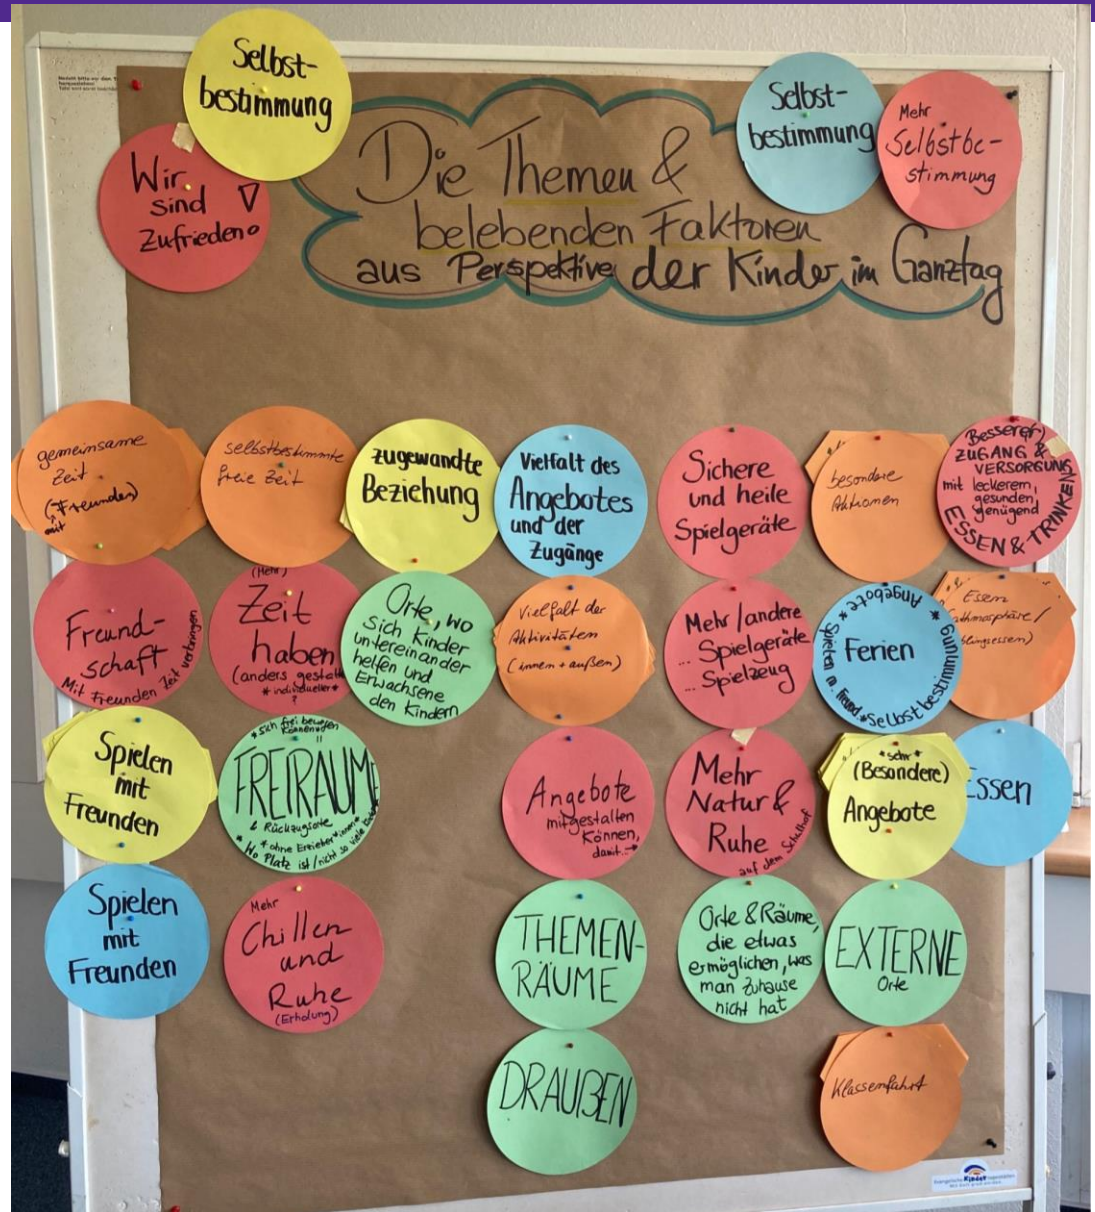 Selbst-
bestimmung
Wir
sind
Zufrieden!
Die Themen &
belebenden Faktoren
aus Perspektive der Kinder im Ganztag
Selbst-
bestimmung
Mehr
Selbstbe-
stimmung
gemeinsame
Zeit
(Freunde)
mit
selbstbestimmte
freie Zeit
zugewandte
Beziehung
Vielfalt des
Angebotes
und der
Zugänge
Sichere
und heile
Spielgeräte
besondere
Aktionen
Bessere(r)
ZUGANG &
VERSORGUNG
mit leckerem,
gesunden,
genügend
ESSEN & TRINKEN
Freund-
schaft
Mit Freunden Zeit verbringen
(Mehr)
Zeit
haben
(anders gestalt
*individueller*
?
Orte, wo
sich Kinder
untereinander
helfen und
Erwachsene
den Kindern
Vielfalt der
Aktivitäten
(innen + außen)
Mehr/andere
... Spielgeräte
... Spielzeug
Ferien
* Spielen m. Freund. * Selbstbestimmung * Angebote
Essen
thmosphäre/
blingsessen)
Spielen
mit
Freunden
*sich frei bewegen
können*
FREIRÄUME
& Rückzugsorte
* ohne Erzieher*innen*
* Wo Platz ist/nicht so viele
Angebote
mitgestalten
können,
damit...→
Mehr
Natur &
Ruhe
auf dem Schulhof
*sehr*
(Besondere)
Angebote
Essen
Spielen
mit
Freunden
Mehr
Chillen
und
Ruhe
(Erholung)
THEMEN-
RÄUME
Orte & Räume,
die etwas
ermöglichen, was
man zuhause
nicht hat
EXTERNE
Orte
DRAUßEN
Klassenfahrt